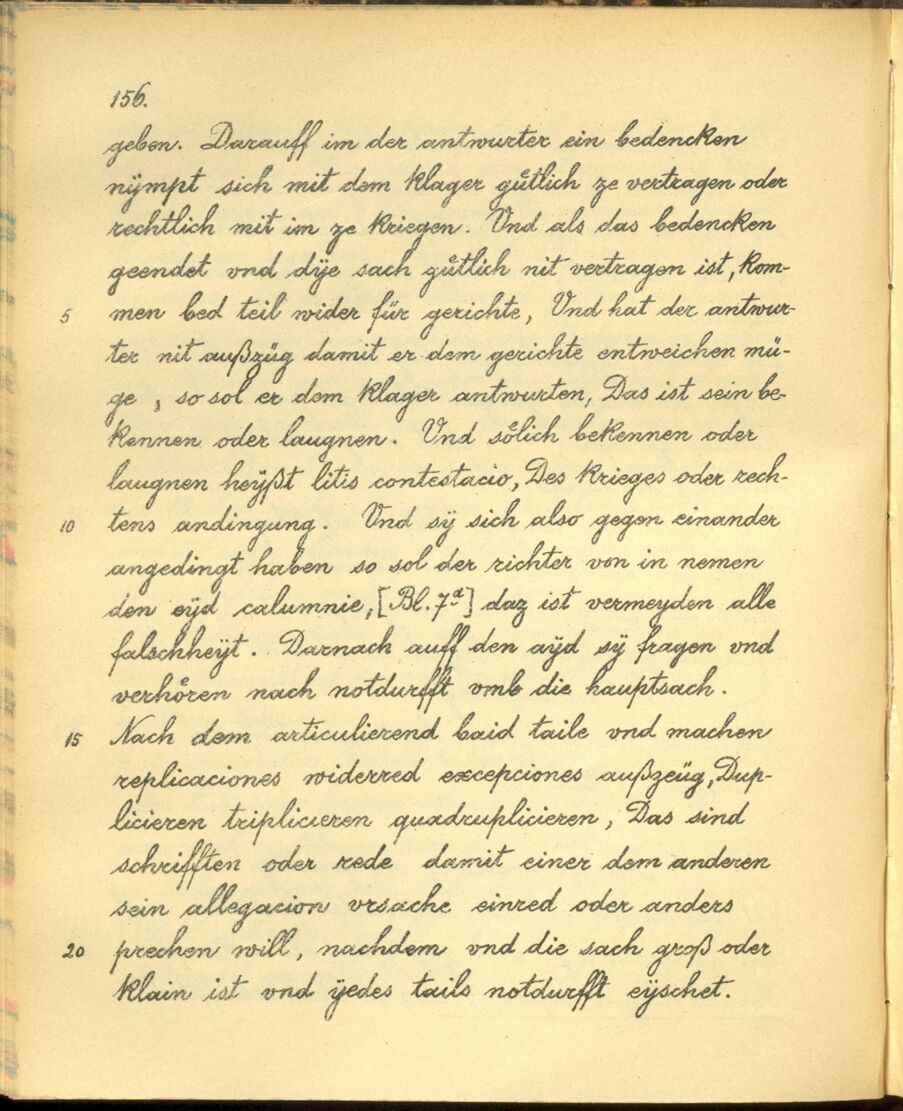 156.
geben. Darauff im der antwurter ein bedencken
nÿmpt sich mit dem klager gůtlich ze vertragen oder
rechtlich mit im ze kriegen. Vnd als das bedencken
geendet vnd dÿe sach gůtlich nit vertragen ist, kom-
5 men bed teil wider für gerichte, Vnd hat der antwur-
ter nit außzüg damit er dem gerichte entweichen mü-
ge, so sol er dem klager antwurten, Das ist sein be-
kennen oder laugnen. Vnd sőlich bekennen oder
laugnen heÿßt litis contestacio, Des krieges oder rech-
10 tens andingung. Vnd sÿ sich also gegen einander
angedingt haben so sol der richter von in nemen
den eÿd calumnie, [Bl. 7ᵈ] daz ist vermeyden alle
falschheÿt. Darnach auff den aÿd sÿ fragen vnd
verhőren nach notdurfft vmb die hauptsach.
15 Nach dem articulierend baid taile vnd machen
replicaciones widerred excepciones außzeüg, Dup-
licieren triplicieren quadruplicieren, Das sind
schrifften oder rede damit einer dem anderen
sein allegacion vrsache einred oder anders
20 prechen will, nachdem vnd die sach groß oder
klain ist vnd ÿedes tails notdurfft eÿschet.